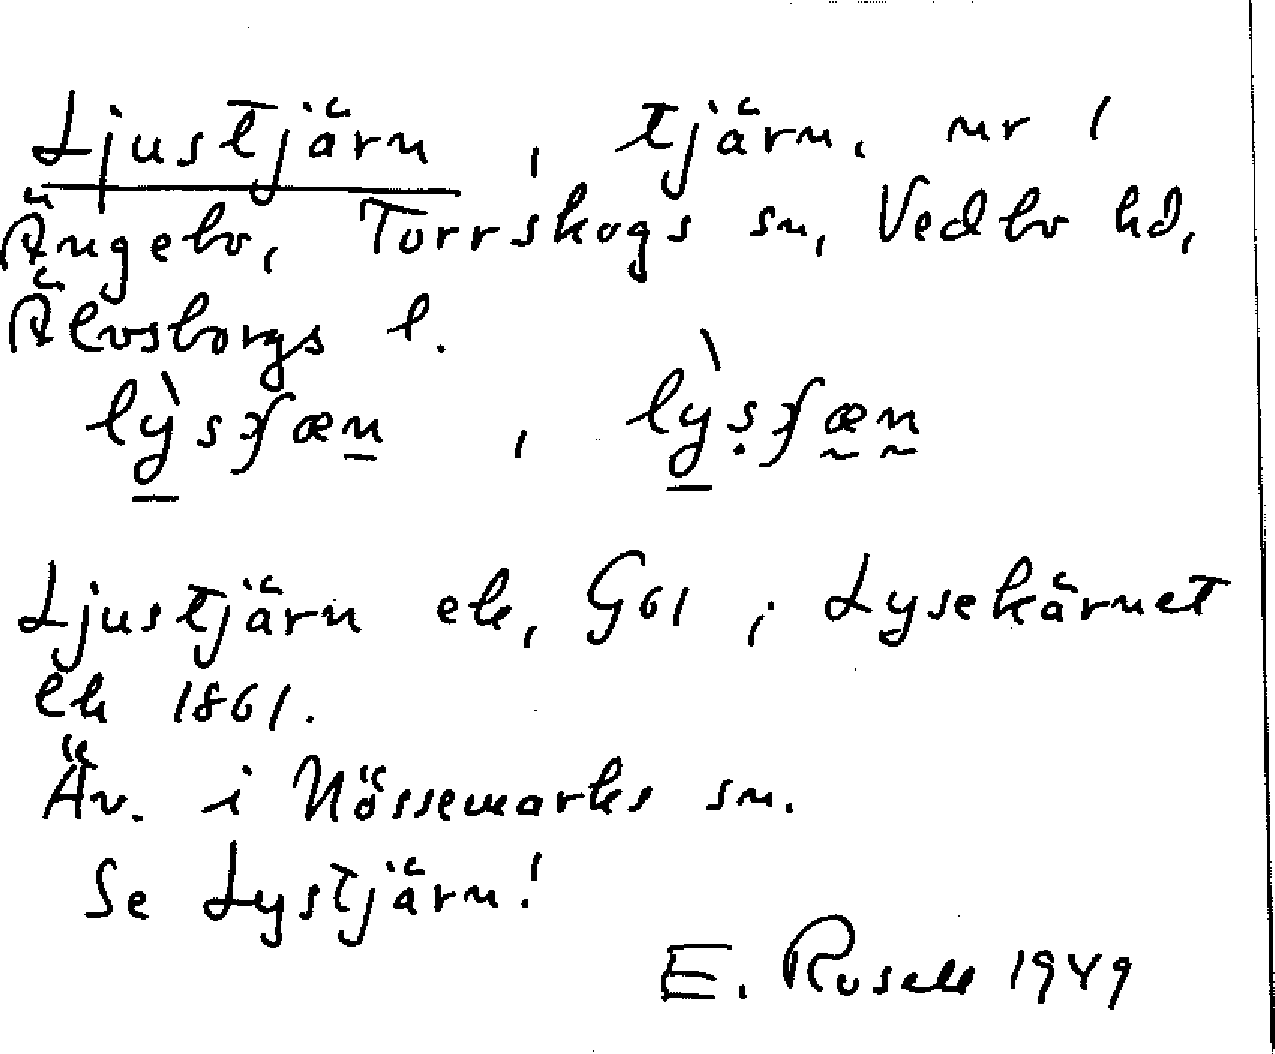 Ljustjärn, tjärn, nr 1
Ängebo, Torrskogs sn, Vedbo hd,
Älvsborgs l.
Ljustjärn ek, G61; Lysekärnet
Ek 1861.
Äv. i Nössemarks sn.
Se Lystjärn!
E. Rosell 1949